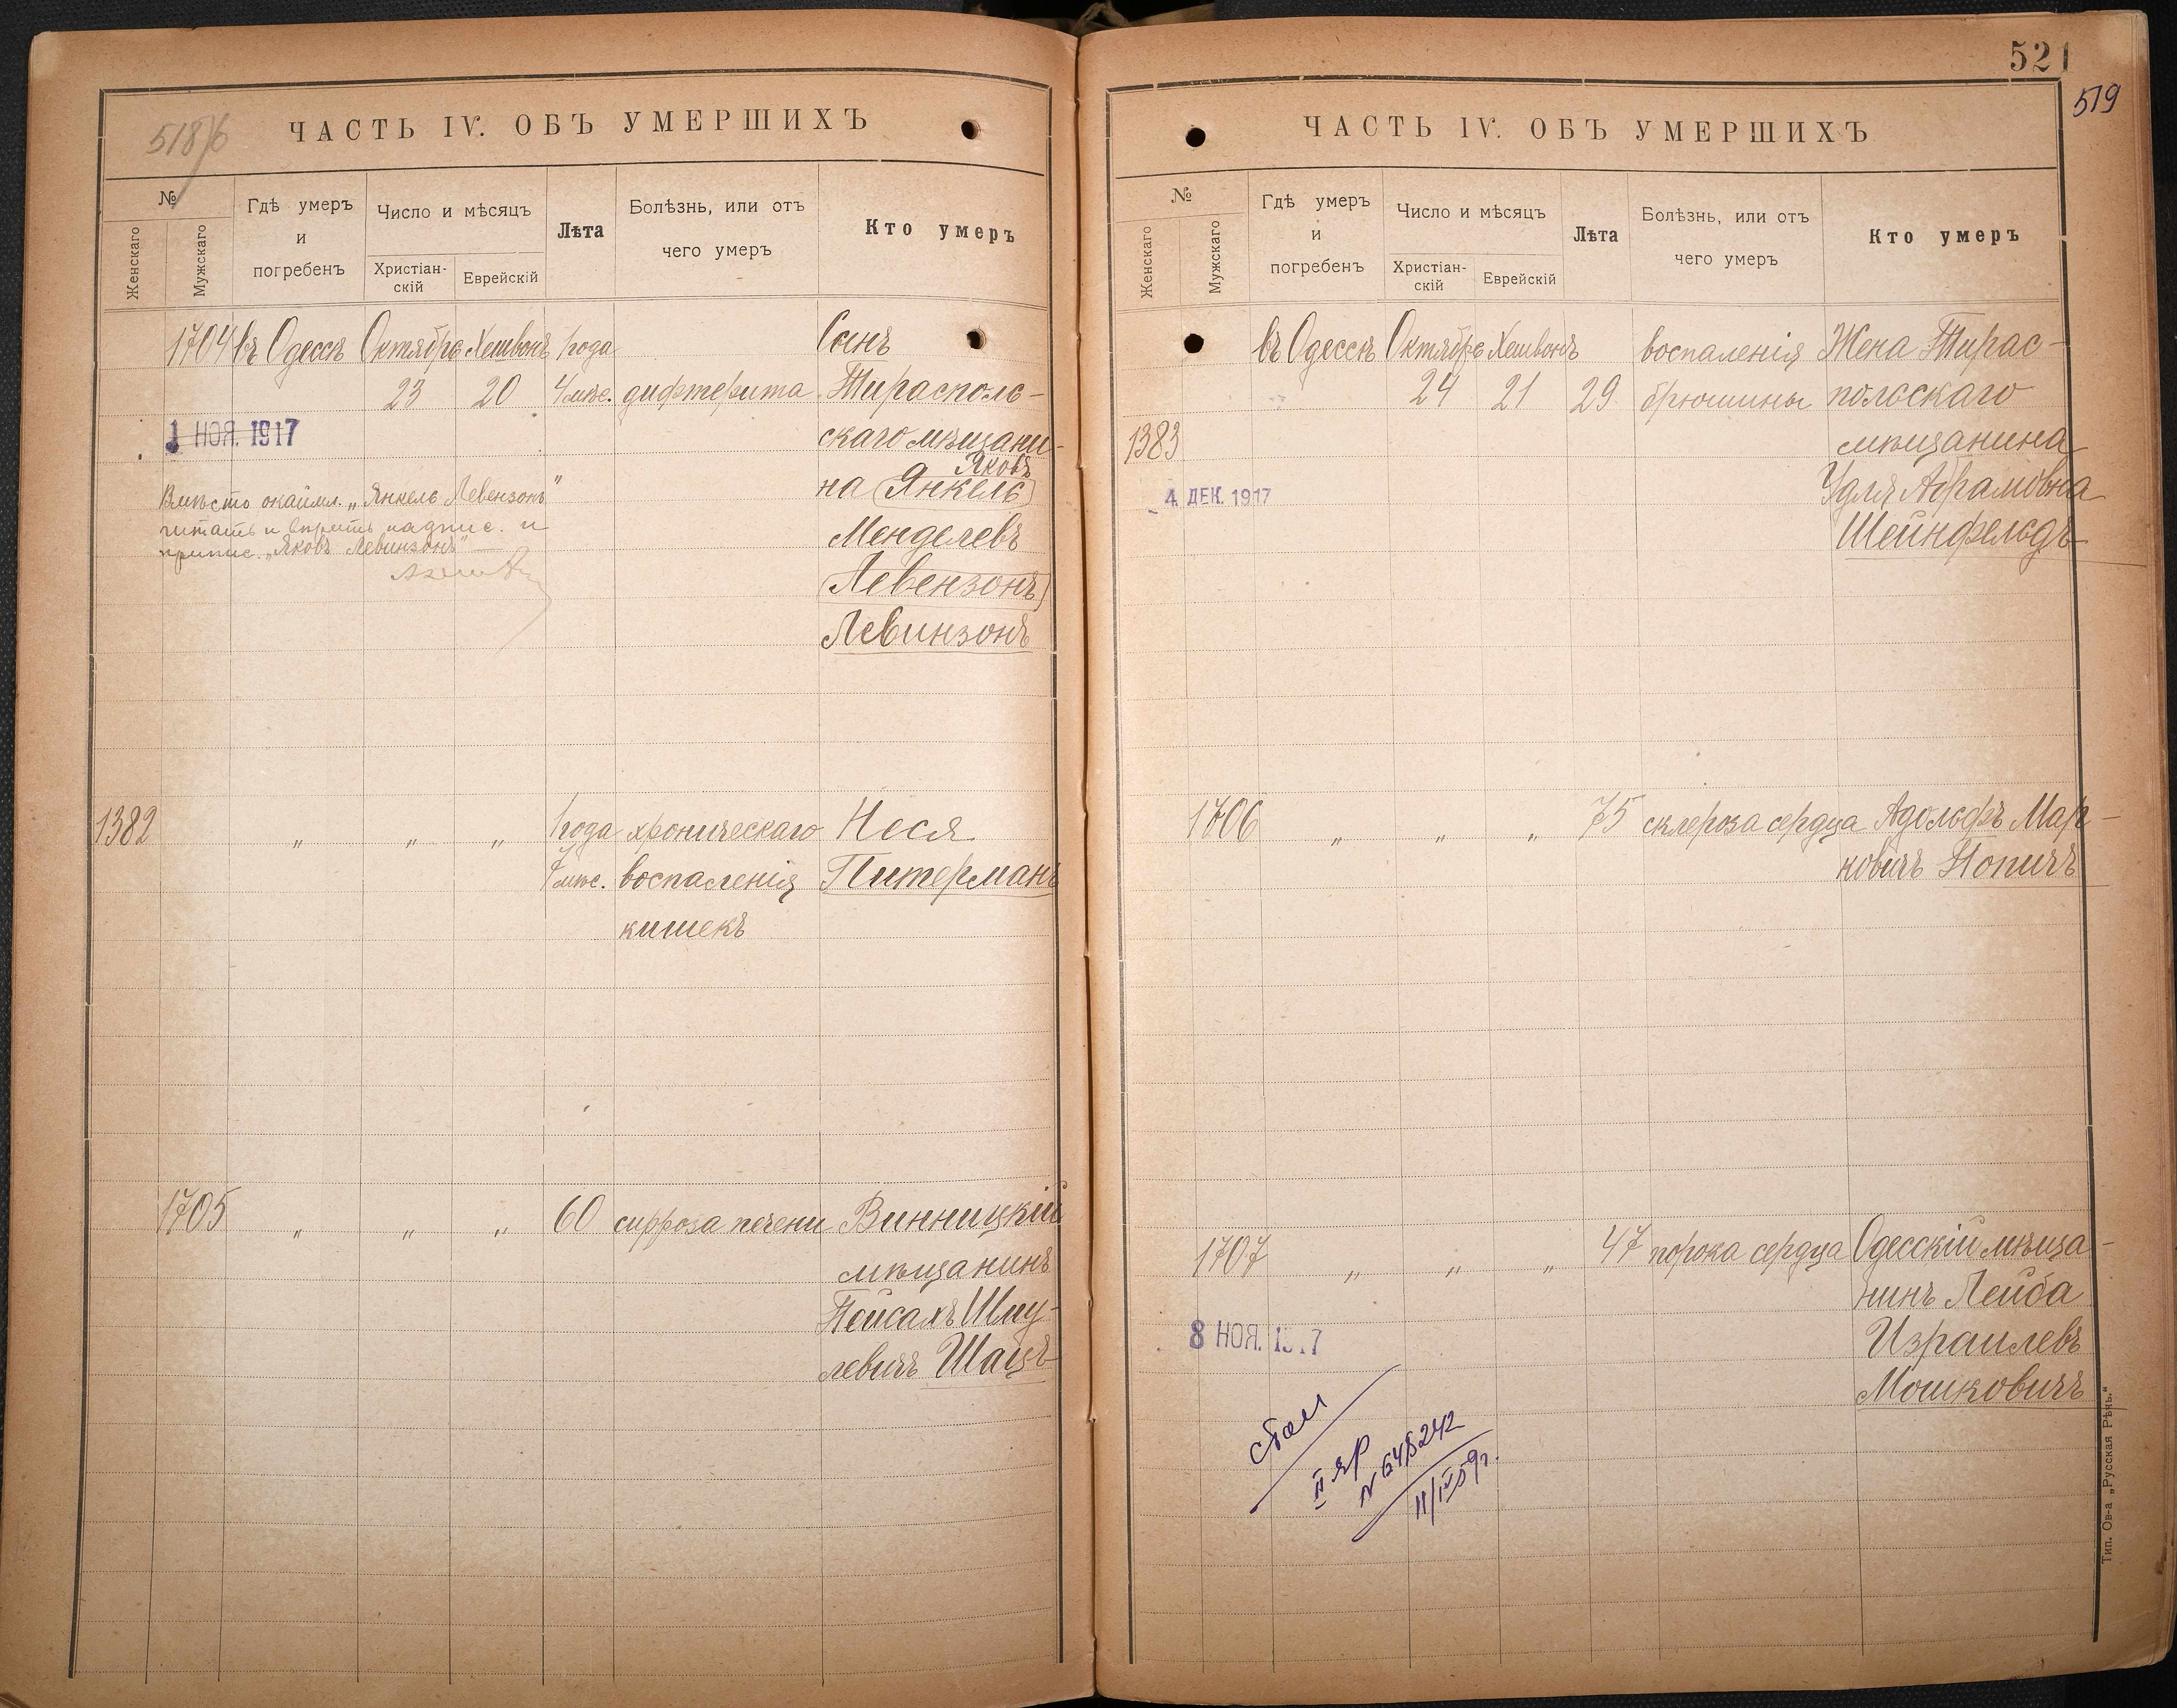 518 об
ЧАСТЬ IV. ОБЪ УМЕРШИХЪ
№
Женскаго
Мужскаго
Гдѣ умеръ
и
погребенъ
Число и мѣсяцъ
Христіан-
скій
Еврейскій
Лѣта
Болѣзнь, или отъ
чего умеръ
Кто умеръ
1704 въ Одессѣ Октября Хешвонъ 1 года Сынъ
23 20 4 мѣс. дифтерита Тирасполь-
1 НОЯ. 1917
скаго мѣщани-
Яковъ
на (Янкель)
Вмѣсто окаймл. „Янкель Левензонъ"
читать и вѣрить надпис. и
припис. „Яковъ Левинзонъ"
Менделевъ
(Левензонъ)
Левинзонъ
1382 „ „ „ 1 года хроническаго Неся
7 мѣс. воспаленія Питерманъ
кишекъ
1705 „ „ „ 60 цирроза печени Винницкій
мѣщанинъ
Пейсахъ Шму-
левичъ Шацъ
521
519
ЧАСТЬ IV. ОБЪ УМЕРШИХЪ
№
Женскаго
Мужскаго
Гдѣ умеръ
и
погребенъ
Число и мѣсяцъ
Христіан-
скій
Еврейскій
Лѣта
Болѣзнь, или отъ
чего умеръ
Кто умеръ
въ Одессѣ Октября Хешвонъ воспаленія Жена Тирас-
24 21 29 брюшины польскаго
1383 мѣщанина
4 ДЕК. 1917
Удля Абрамовна
Шейнфельдъ
1706 „ „ „ 75 склероза сердца Адольфъ Мар-
ковичъ Копичъ
1707 „ „ „ 47 порока сердца Одесскій мѣща-
нинъ Лейба
8 НОЯ. 1917
Израилевъ
Мошковичъ
II ЯР
N 648242
11/IV 59г.
Тип. Ов-а „Русская Рѣчь."